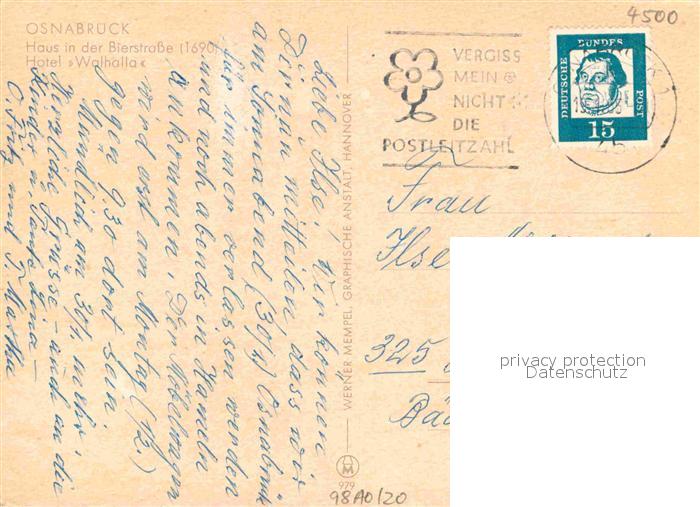 4500
OSNABRÜCK
Haus in der Bierstraße (1690)
Hotel »Walhalla«
VERGISS
MEIN
NICHT
DIE
POSTLEITZAHL
DEUTSCHE
BUNDES
POST
15
45
Liebe Ilse! Wir können
Dir nun mitteilen, dass wir
am Sonnabend (30/4) Osnabrück
für immer verlassen werden
und noch abends in Hameln
ankommen. Der Möbelwagen
wird erst am Montag (1/2.)
gegen 9.30 dort sein.
Mündlich am 30/4 mehr.
Herzliche Grüsse – auch an die
Kinder u. Tante Lina –
O. Fritz und T. Martha
WERNER MEMPEL, GRAPHISCHE ANSTALT, HANNOVER
979
98A0/20
Frau
Ilse
325
privacy protection
Datenschutz